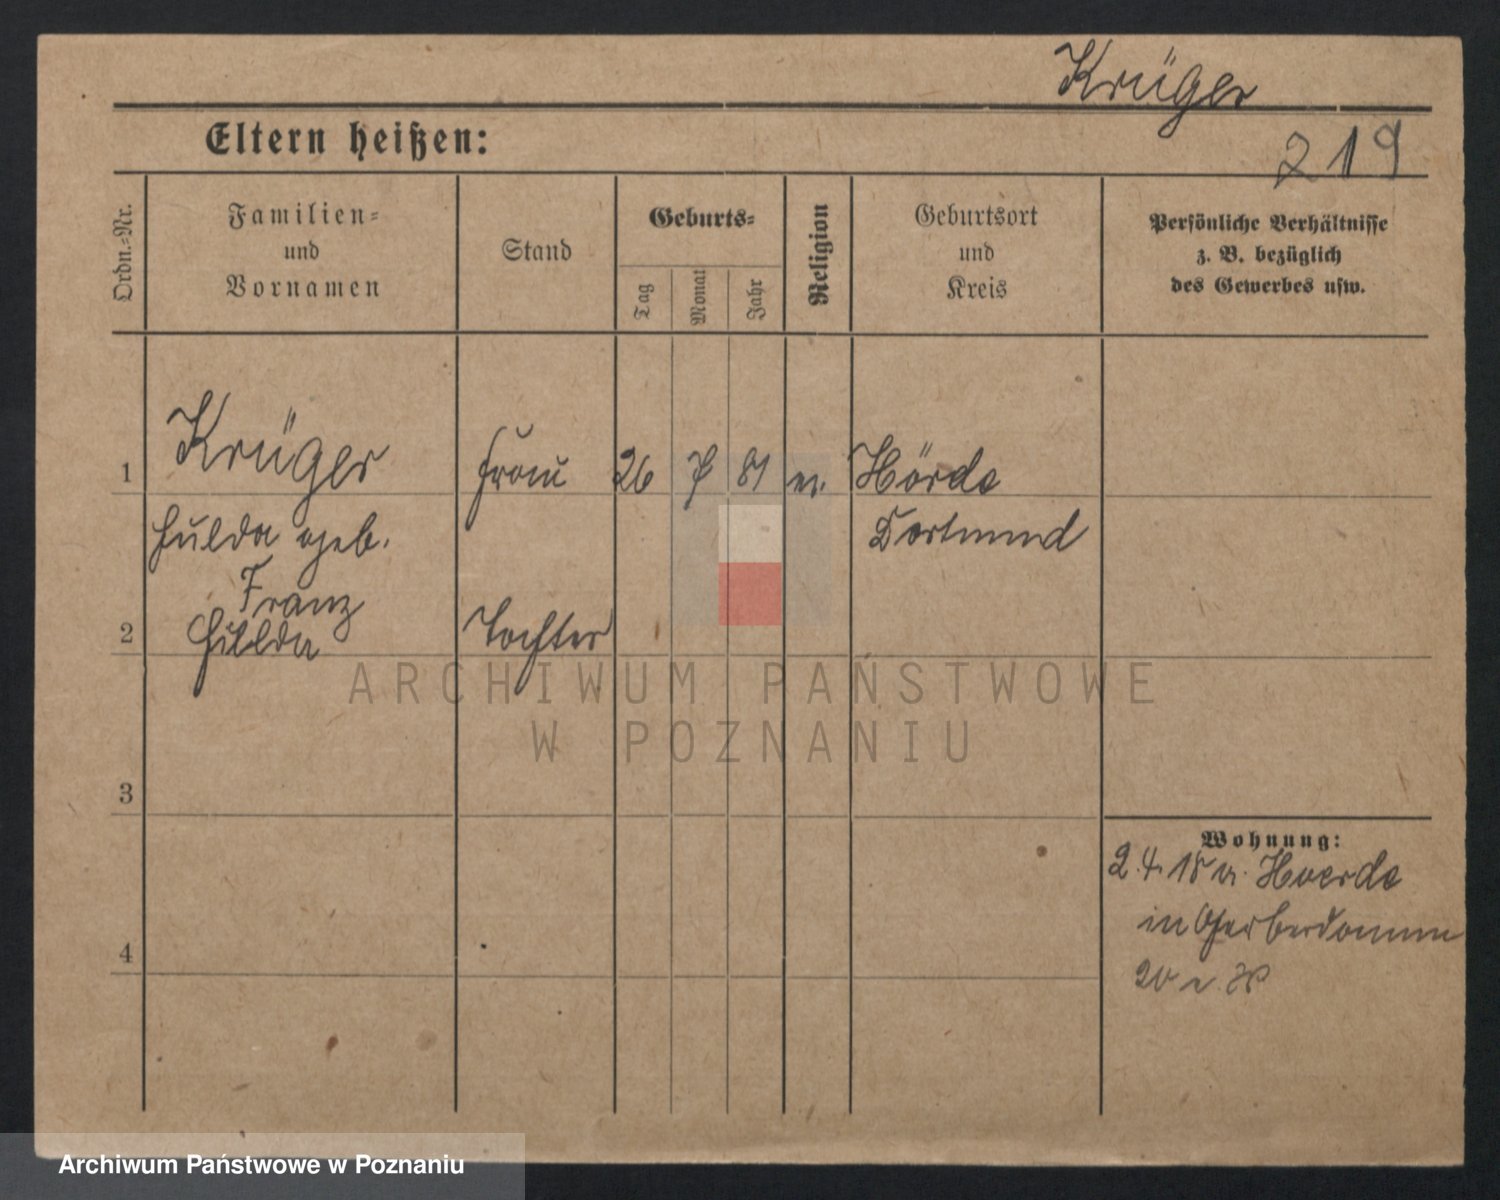 Krüger
219
Eltern heißen:
Ordn.-Nr.
Familien-
und
Vornamen
Stand
Geburts-
Tag
Monat
Jahr
Religion
Geburtsort
und
Kreis
Persönliche Verhältnisse
z. B. bezüglich
des Gewerbes usw.
1
Krüger
Frau
26
81
Hörde
Hulda geb.
Dortmund
Franz
2
Hilda
Tochter
ARCHIWUM PAŃSTWOWE
W POZNANIU
3
Wohnung:
2.4.18 v. Hoerde
in Gerberdamm
4
20
Archiwum Państwowe w Poznaniu